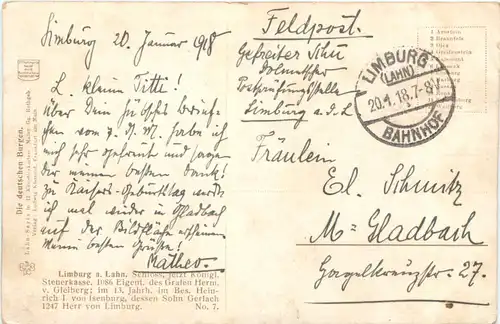 Limburg 20. Januar 1918
L. kleine Titti!
Über Dein hübsches Brief-
chen vom 7. d. M. habe ich
mich sehr gefreut und sage
Dir meinen besten Dank!
Zu Kaisers-Geburtstag werde
ich mal wieder in Gladbach
auf der Bildfläche erscheinen
Meine besten Grüße!
Matheo.
Limburg a. Lahn. Schloss, jetzt Königl.
Steuerkasse. 1086 Eigent. des Grafen Herm.
v. Gleiberg; im 13. Jahrh. im Bes. Hein-
rich I. von Isenburg, dessen Sohn Gerlach
1247 Herr von Limburg. No. 7.
Die deutschen Burgen.
Feldpost.
Gefreiter
Dolmetscher
Postprüfungsstelle
Limburg a. d. L.
LIMBURG
(LAHN)
20.1.18.7-8V.
BAHNHOF
Fräulein
El. Schmitz
M. Gladbach
27.